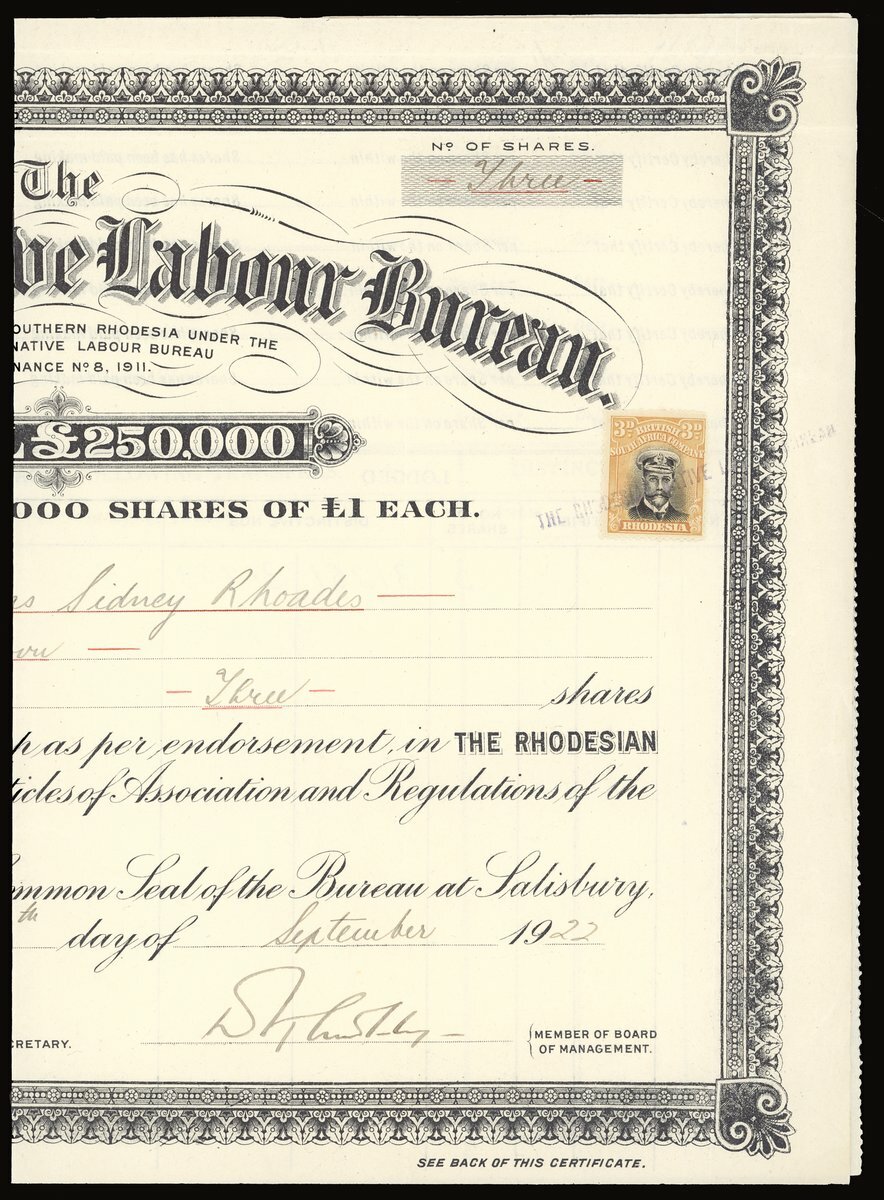 Nº OF SHARES.
The
— Three —
ve Labour Bureau.
OUTHERN RHODESIA UNDER THE
NATIVE LABOUR BUREAU
NANCE Nº 8, 1911.
L £250,000
000 SHARES OF £1 EACH.
3D BRITISH 3D
SOUTH AFRICA COMPANY
RHODESIA
Sidney Rhoades —
— Three — shares
p as per endorsement, in THE RHODESIAN
ticles of Association and Regulations of the
ommon Seal of the Bureau at Salisbury,
th day of September 1922
CRETARY.
MEMBER OF BOARD
OF MANAGEMENT.
SEE BACK OF THIS CERTIFICATE.